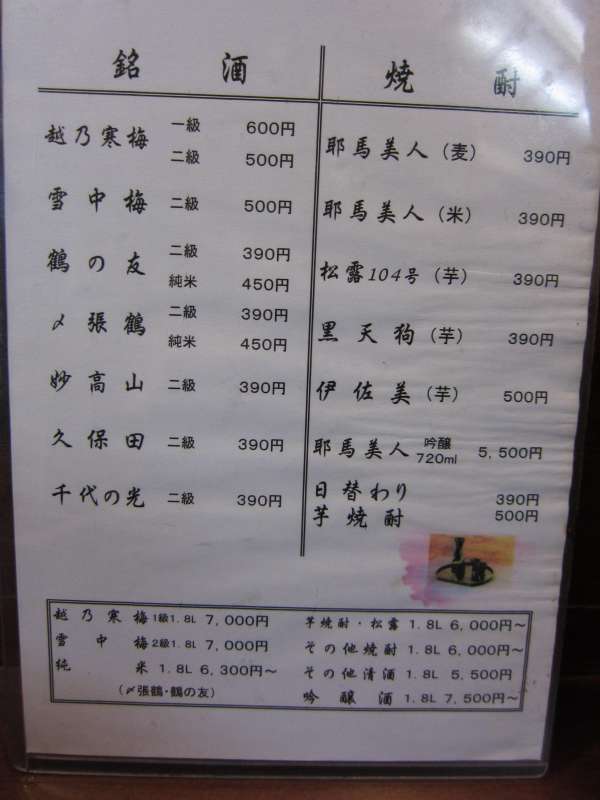 銘酒
越乃寒梅 一級 600円
二級 500円
雪中梅 二級 500円
鶴の友 二級 390円
純米 450円
〆張鶴 二級 390円
純米 450円
妙高山 二級 390円
久保田 二級 390円
千代の光 二級 390円
焼酎
耶馬美人（麦） 390円
耶馬美人（米） 390円
松露104号（芋） 390円
黒天狗（芋） 390円
伊佐美（芋） 500円
耶馬美人 吟醸 720ml 5,500円
日替わり 390円
芋焼酎 500円
越乃寒梅 1級1.8L 7,000円
雪中梅 2級1.8L 7,000円
純米 1.8L 6,300円～
（〆張鶴・鶴の友）
芋焼酎・松露 1.8L 6,000円～
その他焼酎 1.8L 6,000円～
その他清酒 1.8L 5,500円
吟醸酒 1.8L 7,500円～